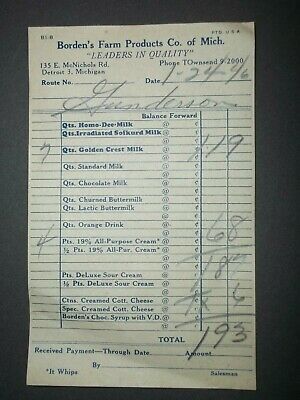 B1-B PTD. U.S.A.
Borden's Farm Products Co. of Mich.
"LEADERS IN QUALITY"
135 E. McNichols Rd. Phone TOwnsend 9-2000
Detroit 3, Michigan
Route No. Date 1-24-46
Gunderson
Balance Forward
Qts. Homo-Dee-Milk @ ¢
Qts. Irradiated Sofkurd Milk @ ¢
7 Qts. Golden Crest Milk @ ¢ 119
Qts. Standard Milk @ ¢
Qts. Chocolate Milk @ ¢
Qts. Churned Buttermilk @ ¢
Qts. Lactic Buttermilk @ ¢
Qts. Orange Drink @ ¢
4 Pts. 19% All-Purpose Cream* @ ¢ 68
½ Pts. 19% All-Pur. Cream* @ ¢
Pts. DeLuxe Sour Cream @ ¢ 187
½ Pts. DeLuxe Sour Cream @ ¢
Ctns. Creamed Cott. Cheese @ ¢ 6
Spec. Creamed Cott. Cheese @ ¢
Borden's Choc. Syrup with V.D. @ ¢
TOTAL 193
Received Payment—Through Date. Amount
By
*It Whips Salesman